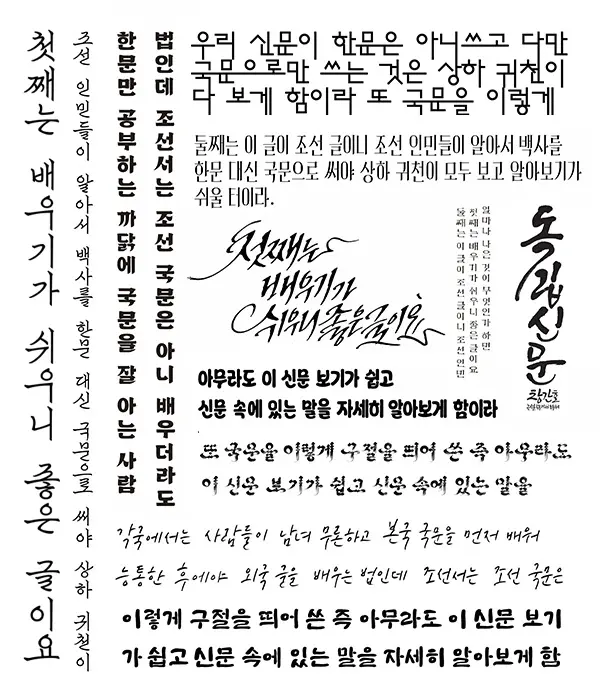 첫째는 배우기가 쉬우니 좋은 글이요
조선 인민들이 알아서 백사를 한문 대신 국문으로 써야 상하 귀천이
법인데 조선서는 조선 국문은 아니 배우더라도
한문만 공부하는 까닭에 국문을 잘 아는 사람
우리 신문이 한문은 아니쓰고 다만
국문으로만 쓰는 것은 상하 귀천이
다 보게 함이라 또 국문을 이렇게
둘째는 이 글이 조선 글이니 조선 인민들이 알아서 백사를
한문 대신 국문으로 써야 상하 귀천이 모두 보고 알아보기가
쉬울 터이라.
첫째는
배우기가
쉬우니 좋은 글이요
얼마나 나은 것이 무엇인가 하면
첫째는 배우기가 쉬우니 좋은 글이요
둘째는 이 글이 조선 글이니 조선 인민
독립신문
창간호
아무라도 이 신문 보기가 쉽고
신문 속에 있는 말을 자세히 알아보게 함이라
또 국문을 이렇게 구절을 띄어 쓴 즉 아무라도
이 신문 보기가 쉽고 신문 속에 있는 말을
각국에서는 사람들이 남녀 무론하고 본국 국문을 먼저 배워
능통한 후에야 외국 글을 배우는 법인데 조선서는 조선 국문은
이렇게 구절을 띄어 쓴 즉 아무라도 이 신문 보기
가 쉽고 신문 속에 있는 말을 자세히 알아보게 함